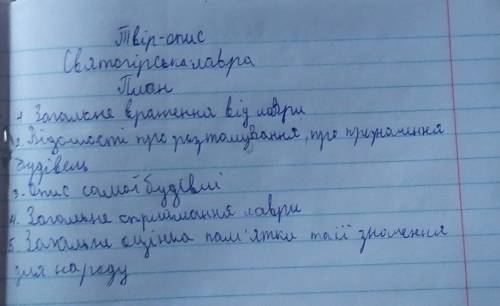 Твір-опис
Святогірська лавра
План
1. Загальне враження від лаври
2. Відомості про розташування, про призначення
будівель
3. Опис самої будівлі
4. Загальне сприймання лаври
5. Загальне оцінка пам'ятки та її значення
для народу